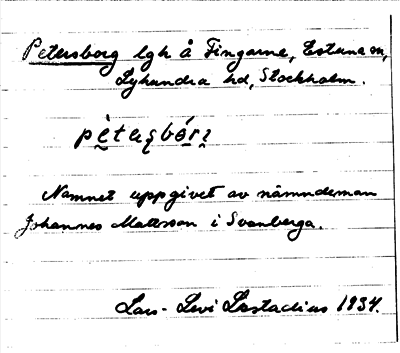 Petersborg lgh å Tingarne, Estuna sn,
Lyhundra hd, Stockholm.
Namnet uppgivet av nämndeman
Johannes Mattsson i Svanberga.
Lars-Levi Læstadius 1934.